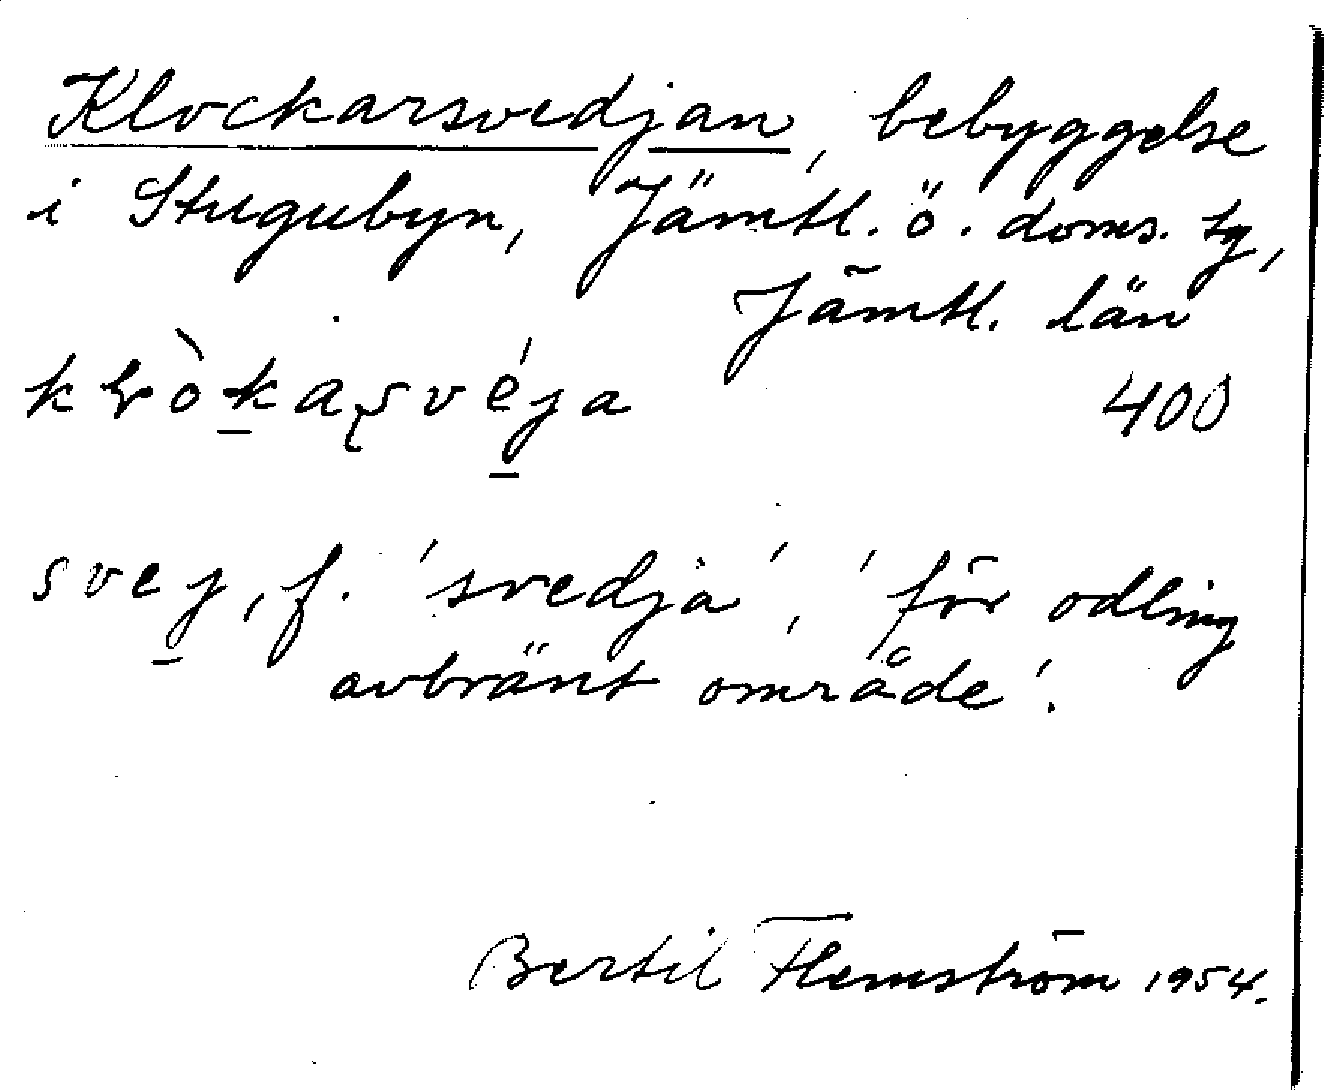 Klockarsvedjan, bebyggelse
i Stugubyn, Jämtl. ö. doms. tg,
Jämtl. län
400
svej, f. 'svedja', 'för odling
avbränt område'.
Bertil Flemström 1954.